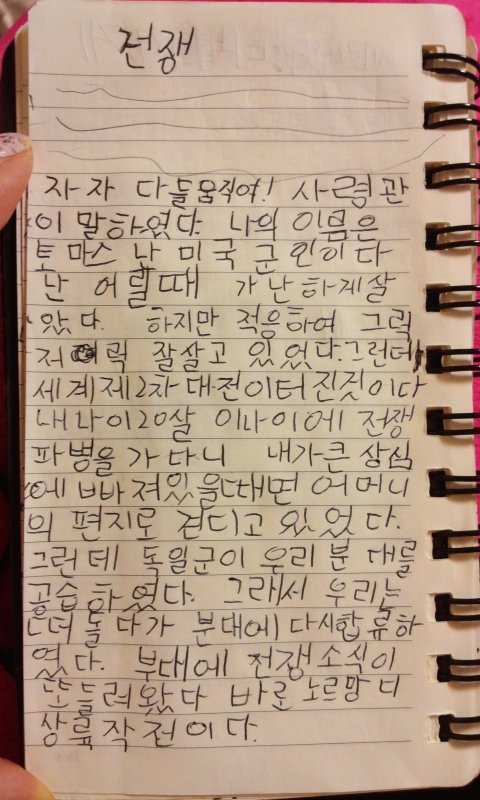 전쟁
자자 다들움직여! 사령관
이 말하였다. 나의 이름은
토마스 난 미국군인이다
난 어릴때 가난하게살
았다. 하지만 적응하여 그럭
저럭 잘살고 있었다.그런데
세계제2차대전이터진것이다
내나이20살 이나이에 전쟁
파병을 가다니 내가큰상심
에 빠져있을때면 어머니
의 편지로 견디고 있었다.
그런데 독일군이 우리 분대를
공습하였다. 그래서 우리는
떠돌다가 분대에 다시합류하
였다. 부대에 전쟁소식이
또들려왔다 바로 노르망디
상륙작전이다.